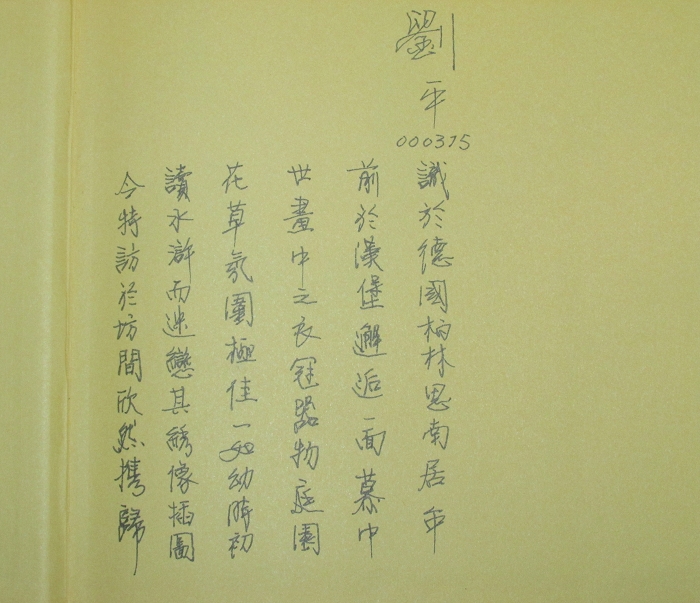 劉一平
000315
識於德國柏林思南居年
前於漢堡邂逅一面慕中
世畫中之衣冠器物庭園
花草氛圍極佳一如幼時初
讀水滸而迷戀其綉像插圖
今特訪於坊間欣然攜歸